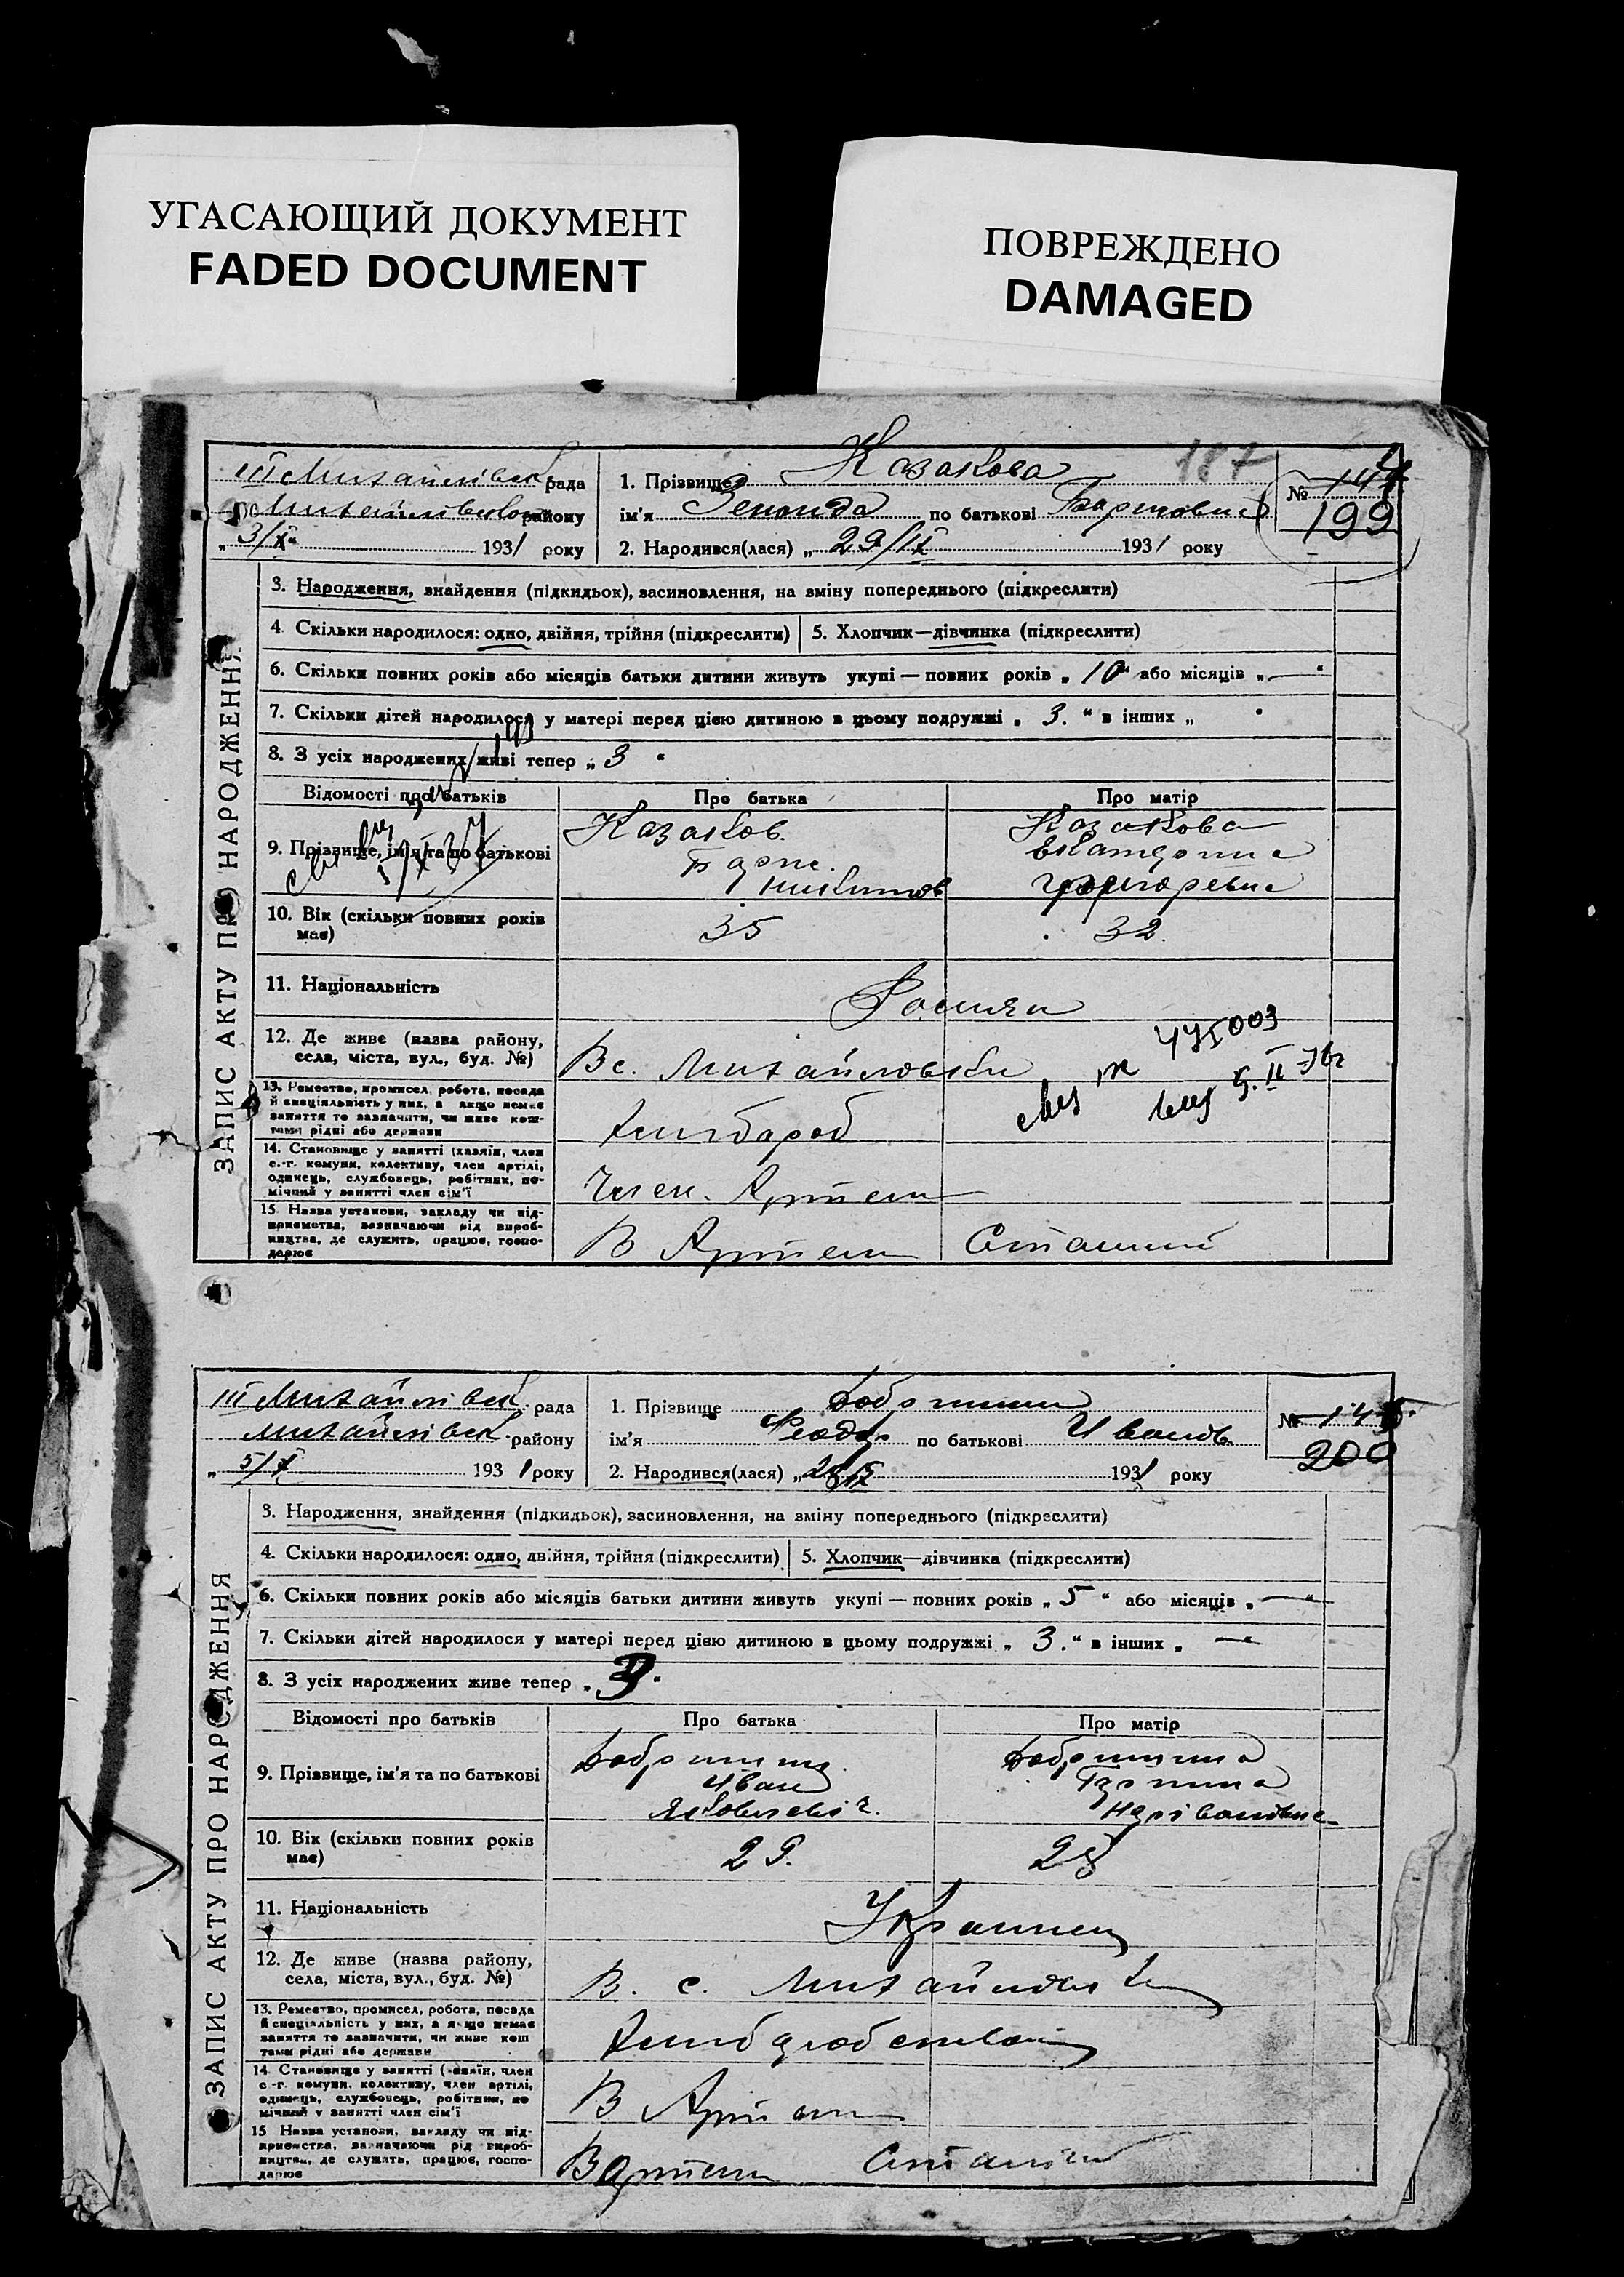 УГАСАЮЩИЙ ДОКУМЕНТ
FADED DOCUMENT
ПОВРЕЖДЕНО
DAMAGED
187
ЗАПИС АКТУ ПРО НАРОДЖЕННЯ
III Михайлівськ рада
району
„ 3/X “ 1931 року
1. Прізвище Казакова
ім'я по батькові Борисовна
2. Народився(лася) „ 29/IX 1931 року
№ 144
199
3. Народження, знайдення (підкидьок), засиновлення, на зміну попереднього (підкреслити)
4. Скільки народилося: одно, двійня, трійня (підкреслити)
5. Хлопчик—дівчинка (підкреслити)
6. Скільки повних років або місяців батьки дитини живуть укупі — повних років „ 10 “ або місяців „ — “
7. Скільки дітей народилося у матері перед цією дитиною в цьому подружжі „ 3. “ в інших „ “
8. З усіх народжених живі тепер „ 3 “
Відомості про батьків
Про батька
Про матір
9. Прізвище, ім'я та по батькові
Казаков
Борис
Казакова
Екатерина
Григоревна
10. Вік (скільки повних років має)
35
32
11. Національність
Росіяни
12. Де живе (назва району, села, міста, вул., буд. №)
В с. Михайловки
13. Ремество, промисел, робота, посада й спеціяльність у них, а якщо немає заняття то зазначити, чи живе коштами рідні або держави
Хлібороб
14. Становище у занятті (хазяїн, член с.-г. комуни, колективу, член артілі, одинець, службовець, робітник, помічний у занятті член сім'ї
Член Артели
15. Назва установи, закладу чи підприємства, зазначаючи рід виробництва, де служить, працює, господарює
В Артели
ЗАПИС АКТУ ПРО НАРОДЖЕННЯ
III Михайлівськ. рада
Михайлівськ. району
„ 5/X 1931 року
1. Прізвище
ім'я Феодор по батькові Иванов
2. Народився(лася) „ 28/IX 1931 року
№ 145
200
3. Народження, знайдення (підкидьок), засиновлення, на зміну попереднього (підкреслити)
4. Скільки народилося: одно, двійня, трійня (підкреслити)
5. Хлопчик—дівчинка (підкреслити)
6. Скільки повних років або місяців батьки дитини живуть укупі — повних років „ 5 “ або місяців „ — “
7. Скільки дітей народилося у матері перед цією дитиною в цьому подружжі „ 3. “ в інших „ —
8. З усіх народжених живе тепер „ 3 “
Відомості про батьків
Про батька
Про матір
9. Прізвище, ім'я та по батькові
Иван
10. Вік (скільки повних років має)
29.
28
11. Національність
Українец
12. Де живе (назва району, села, міста, вул., буд. №)
В. с. Михайловки
13. Ремество, промисел, робота, посада й спеціяльність у них, а якщо немає заняття то зазначити, чи живе коштами рідні або держави
14. Становище у занятті (хазяїн, член с.-г. комуни, колективу, член артілі, одинець, службовець, робітник, помічний у занятті член сім'ї
В Артели
15 Назва установи, закладу чи підприємства, зазначаючи рід виробництва, де служить, працює, господарює
В артели